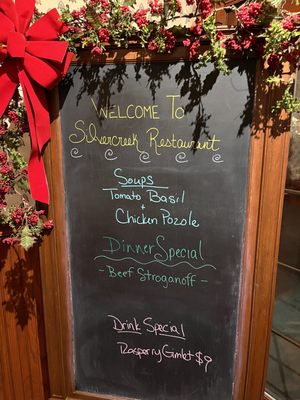 Welcome To
Silvercreek Restaurant
Soups
Tomato Basil
+
Chicken Pozole
Dinner Special
- Beef Stroganoff -
Drink Special
Rasperry Gimlet $9